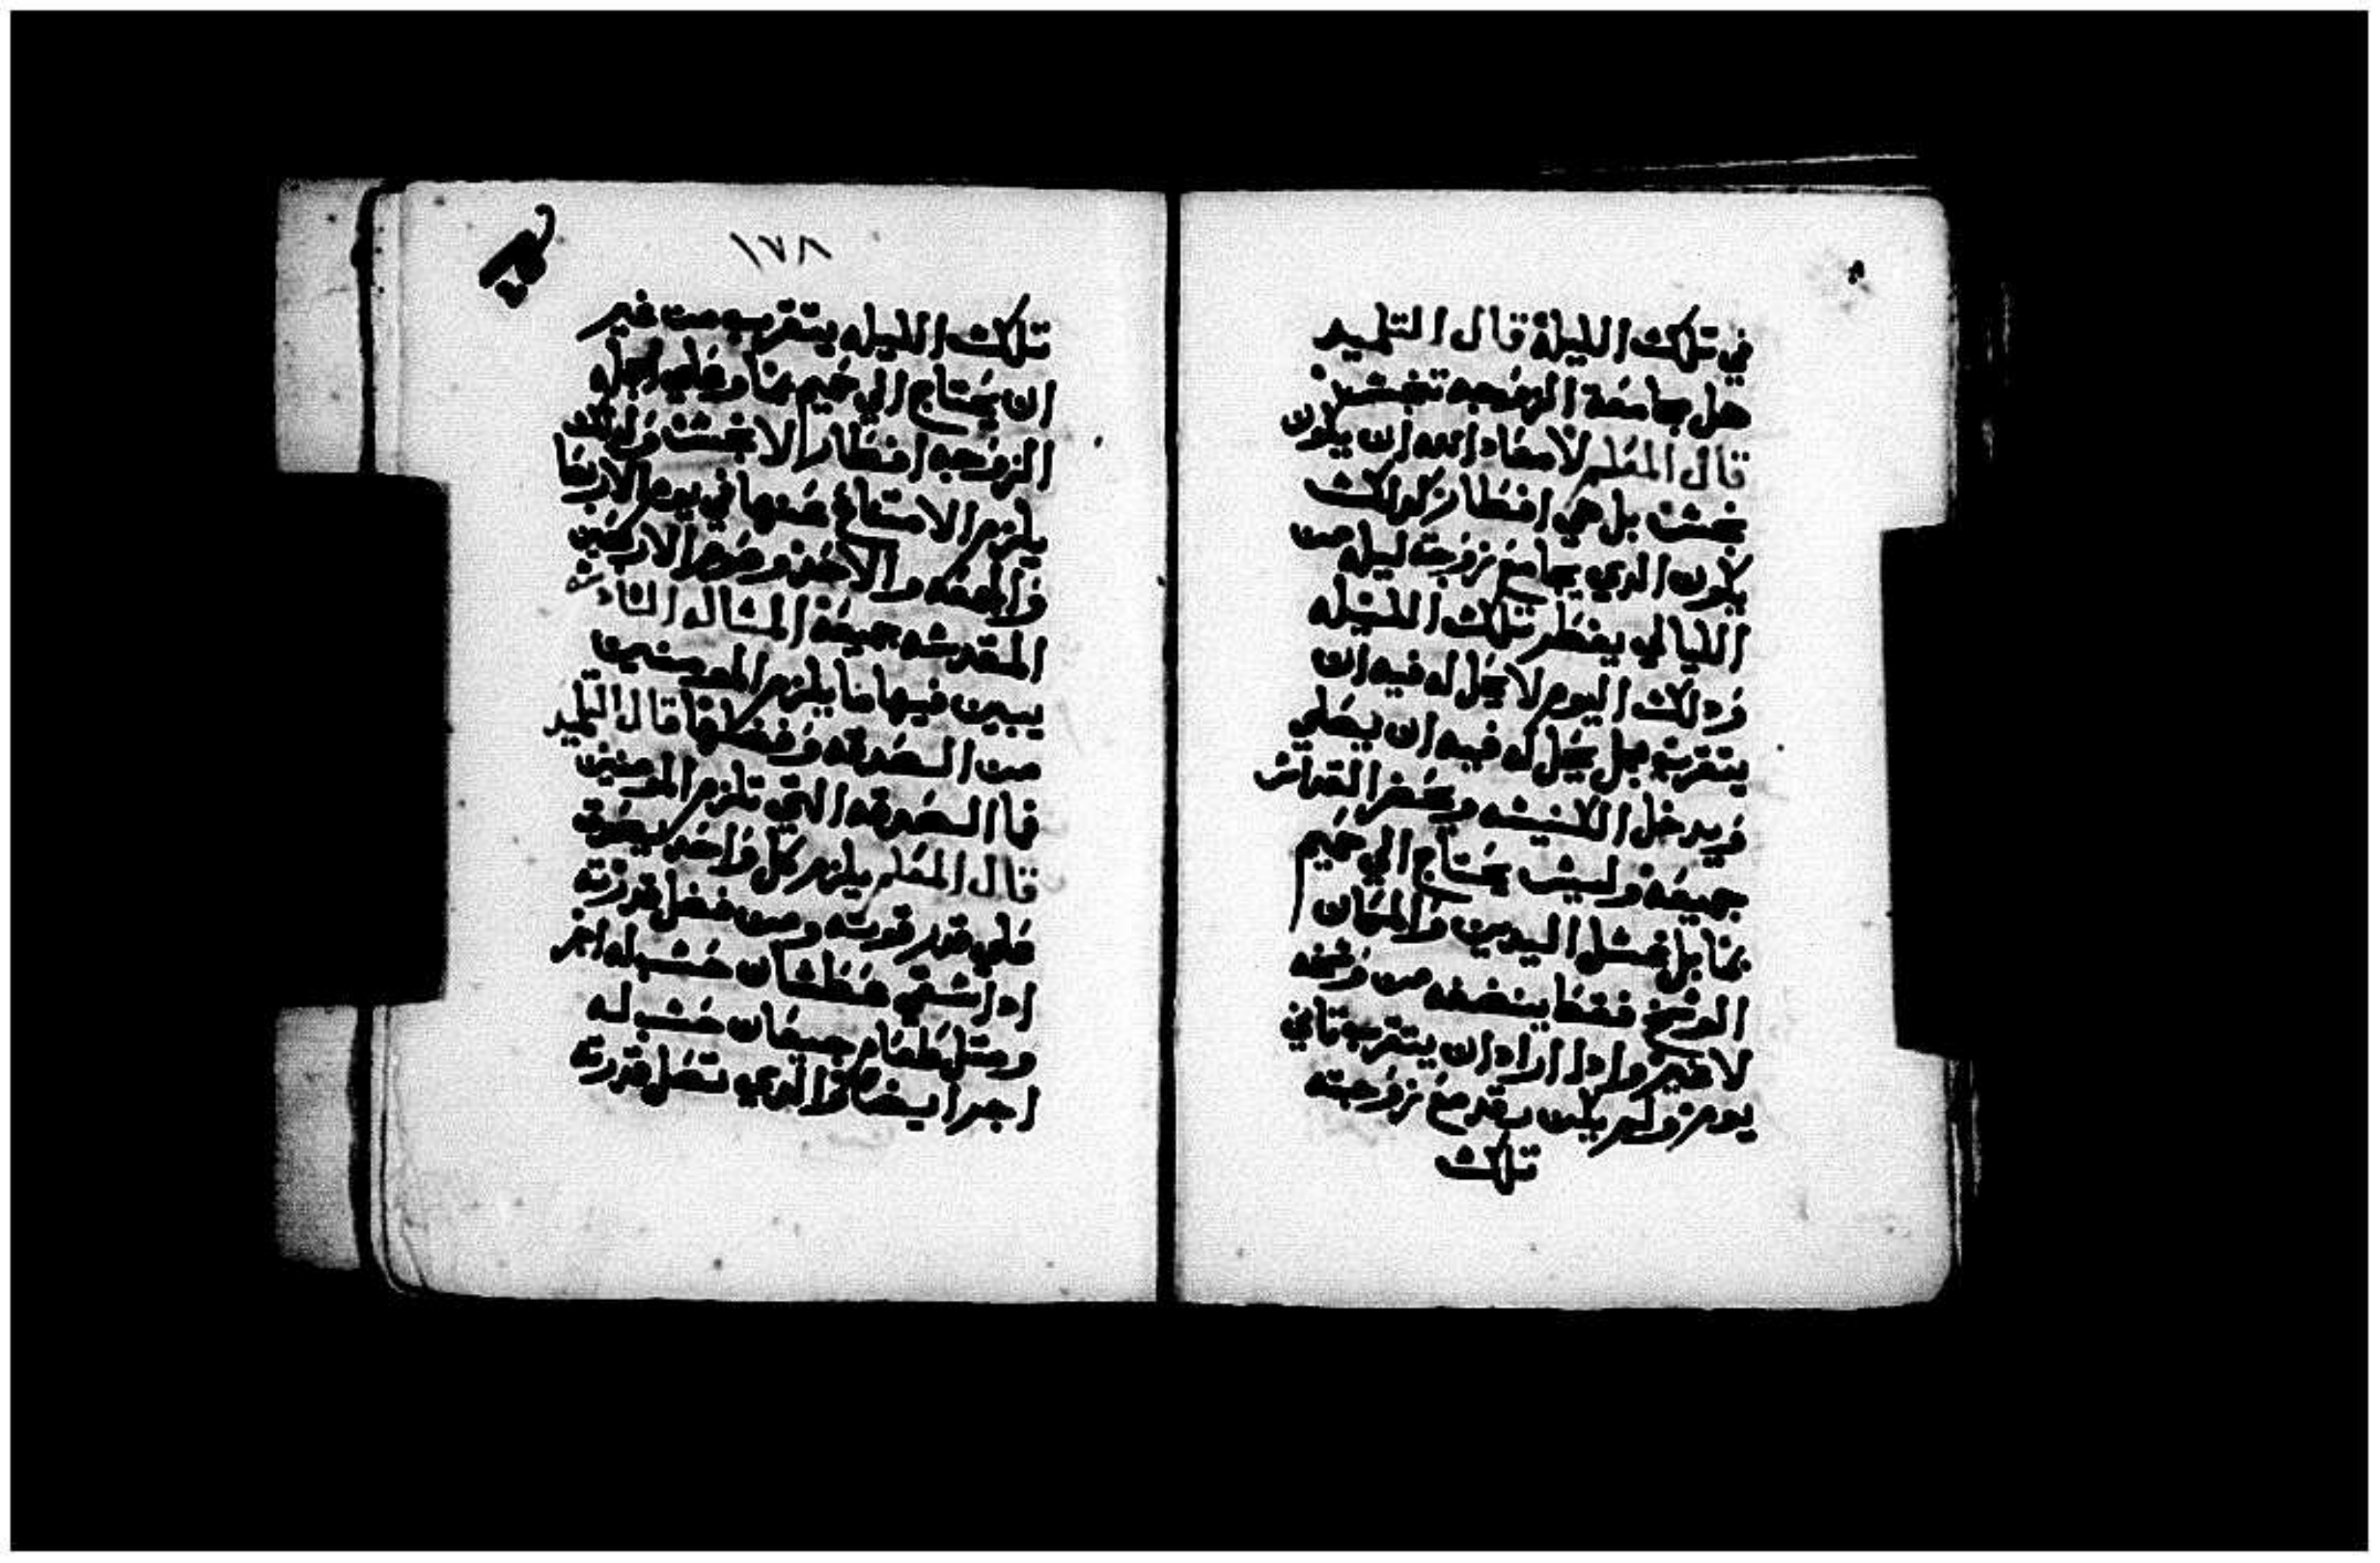 في تلك الليلة قال التلميد
هل مجامعة الزوجه تنجس
قال المعلم لا معاد الله ان يكون
نجس بل هي افطار كدلك
يكون الدي يجامع زوجته ليله من
الليالي يفطر تلك الليله
ودلك اليوم لا يحل له فيه ان
يتقرب بل يحل له فيه ان يصلي
ويدخل الكنيسه ويحضر القداس
جميعه وليس يحتاج الي حميم
بما بل غسل اليدين والمكان
الوسخ فقط ينضفه من وسخه
لا غير وادا اراد ان يتقرب تاني
يوم ولم يكن يرقد مع زوجته
تلك
١٧٨
تلك الليله يتقرب من غير
ان يحتاج الي حميم بما وعلي اجل
الزوجه افطار الا نجس ولدلك
يلزم الامتناع عنها في يوم الاربعا
والجمعه والاحد وصوم الاربعين
المقدسه جميعه المساله التا
يبين فيها ما يلزم المومنين
من الصدقه وفضلها قال التلميد
فما الصدقه التي تلزم المومنين
قال المعلم يلزم كل واحد بصدقة
علي قدر قوته ومن فضل قدرته
ادا سقي عطشان حسب له اجر
ومتل طعام جيعان حسب له
اجر ايضا والدي تصل قدرته